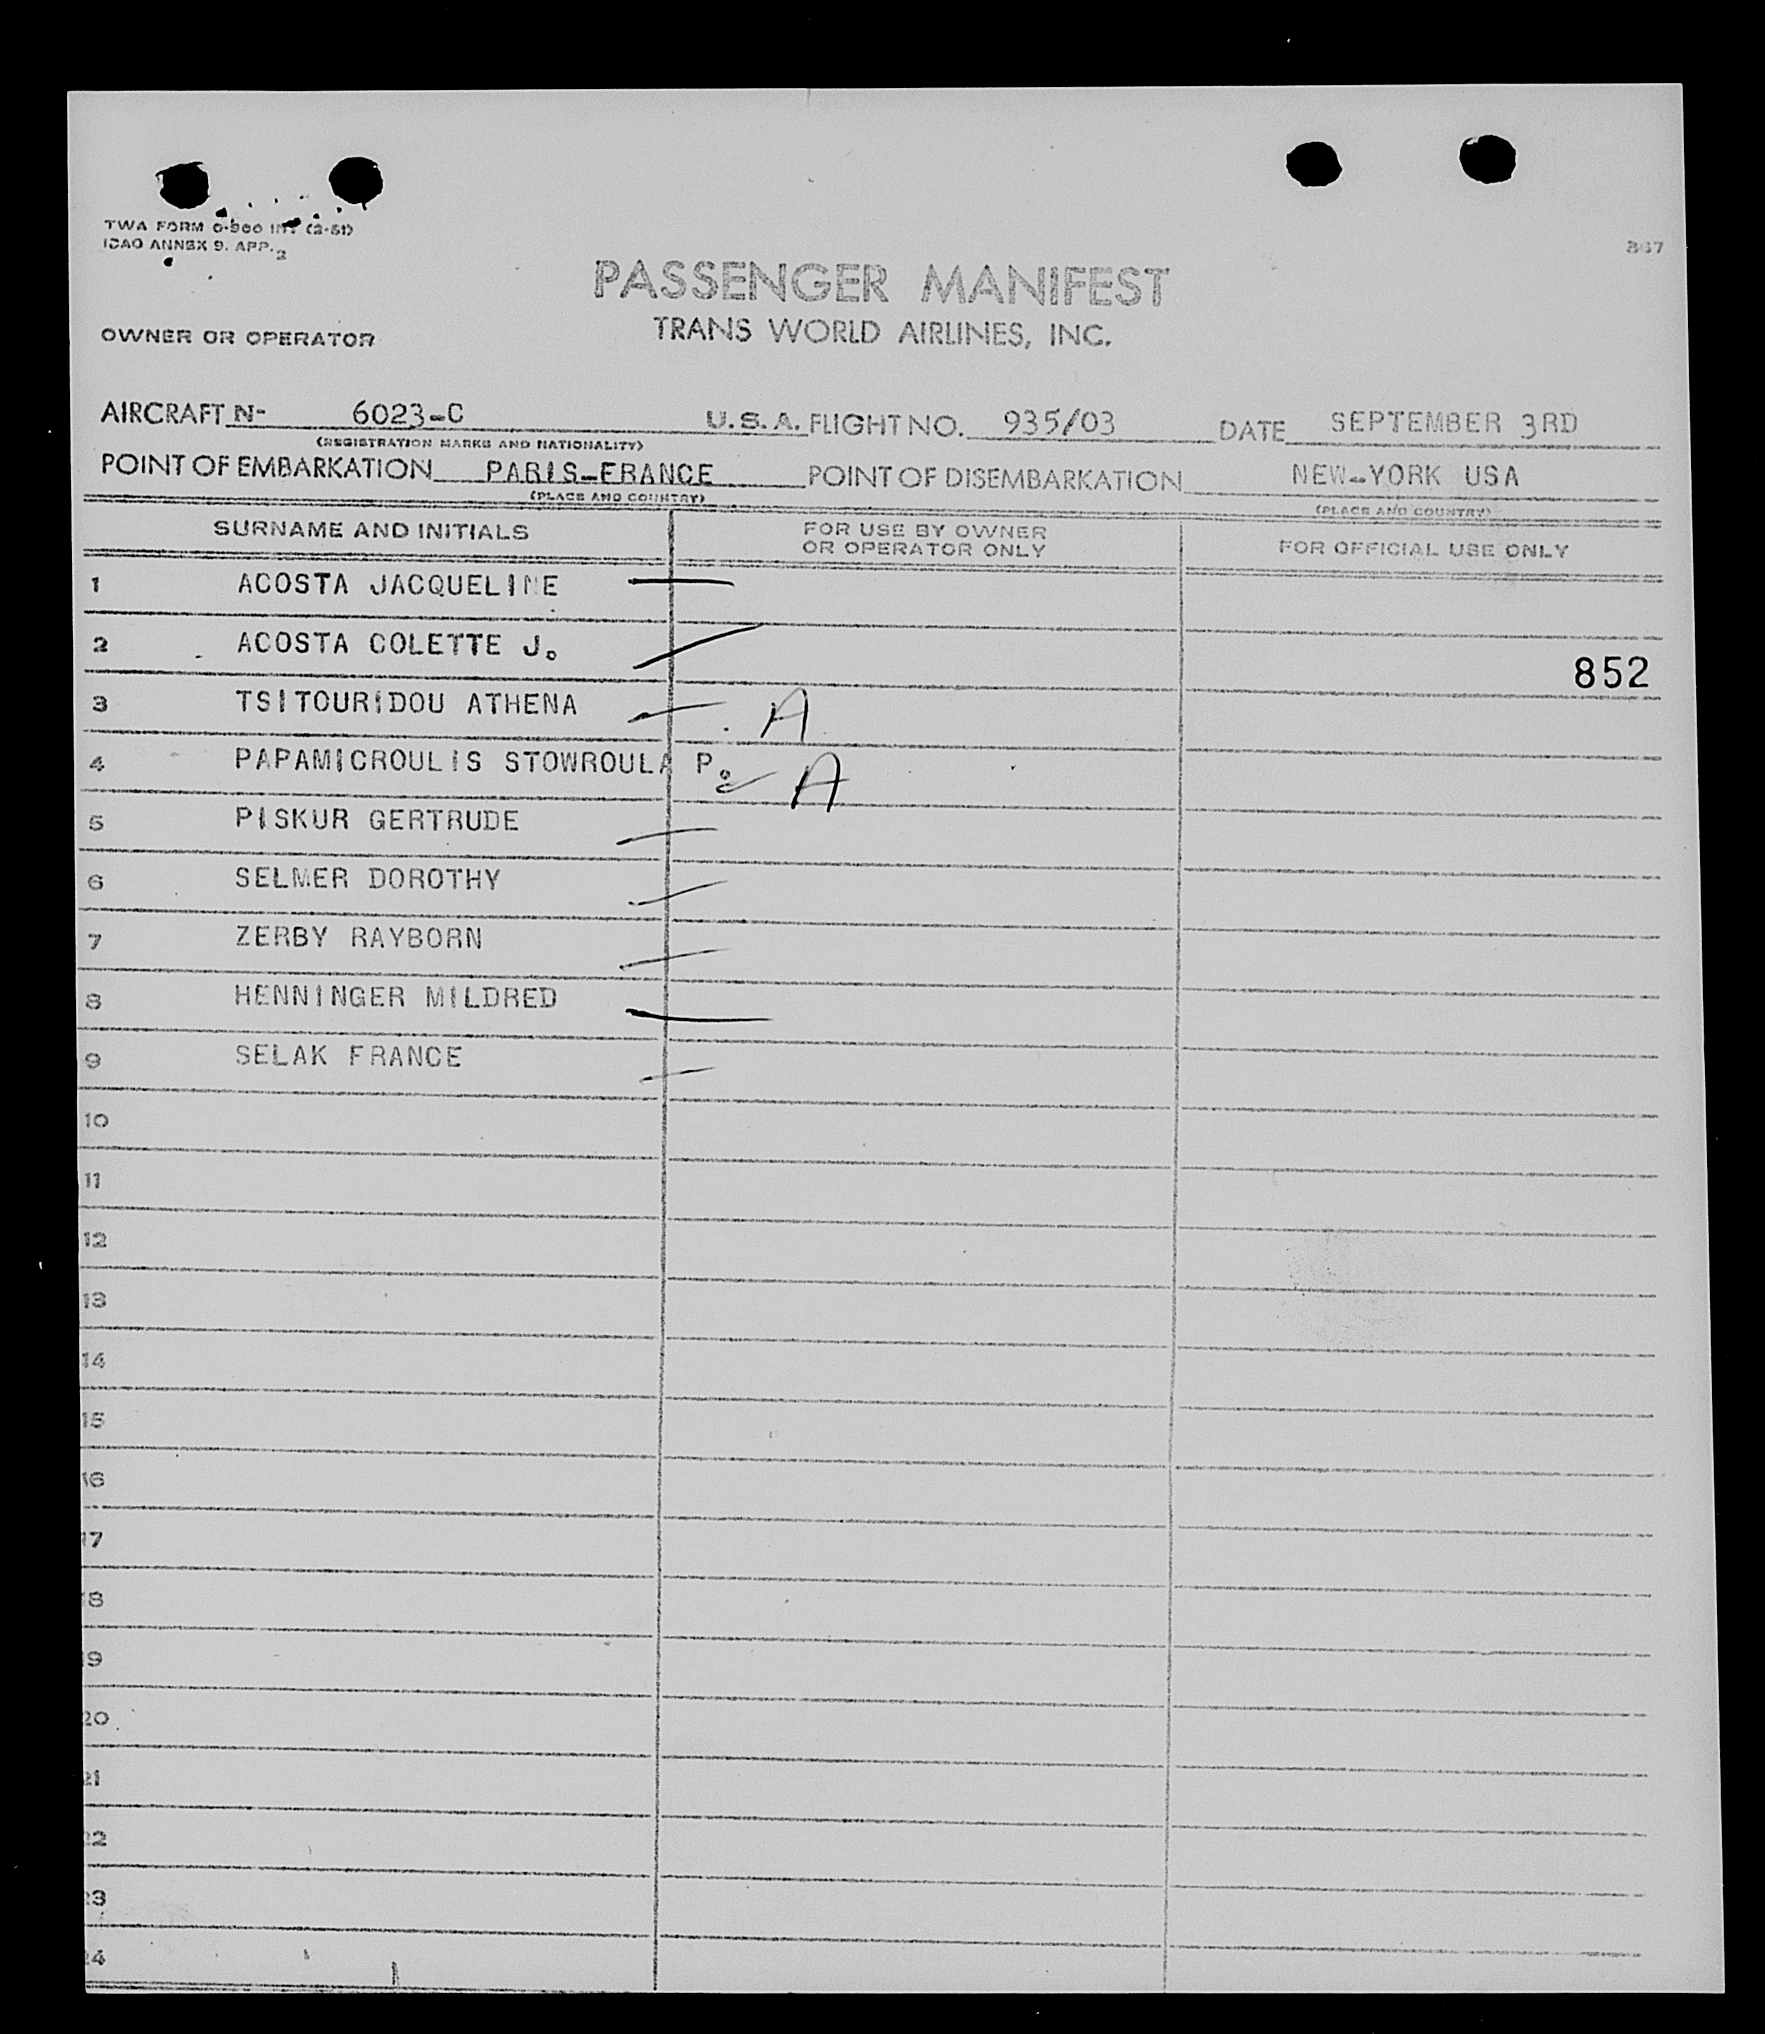 TWA FORM O-900 INT (2-51)
ICAO ANNEX 9. APP. 2
PASSENGER MANIFEST
TRANS WORLD AIRLINES, INC.
OWNER OR OPERATOR
AIRCRAFT N- 6023-C U.S.A. FLIGHT NO. 935/03 DATE SEPTEMBER 3RD
(REGISTRATION MARKS AND NATIONALITY)
POINT OF EMBARKATION PARIS-FRANCE POINT OF DISEMBARKATION NEW-YORK USA
(PLACE AND COUNTRY) (PLACE AND COUNTRY)
SURNAME AND INITIALS FOR USE BY OWNER OR OPERATOR ONLY FOR OFFICIAL USE ONLY
1 ACOSTA JACQUELINE
2 ACOSTA COLETTE J.
852
3 TSITOURIDOU ATHENA A
4 PAPAMICROULIS STOWROULA P. A
5 PISKUR GERTRUDE
6 SELMER DOROTHY
7 ZERBY RAYBORN
8 HENNINGER MILDRED
9 SELAK FRANCE
10
11
12
13
14
15
16
17
18
19
20
21
22
23
24